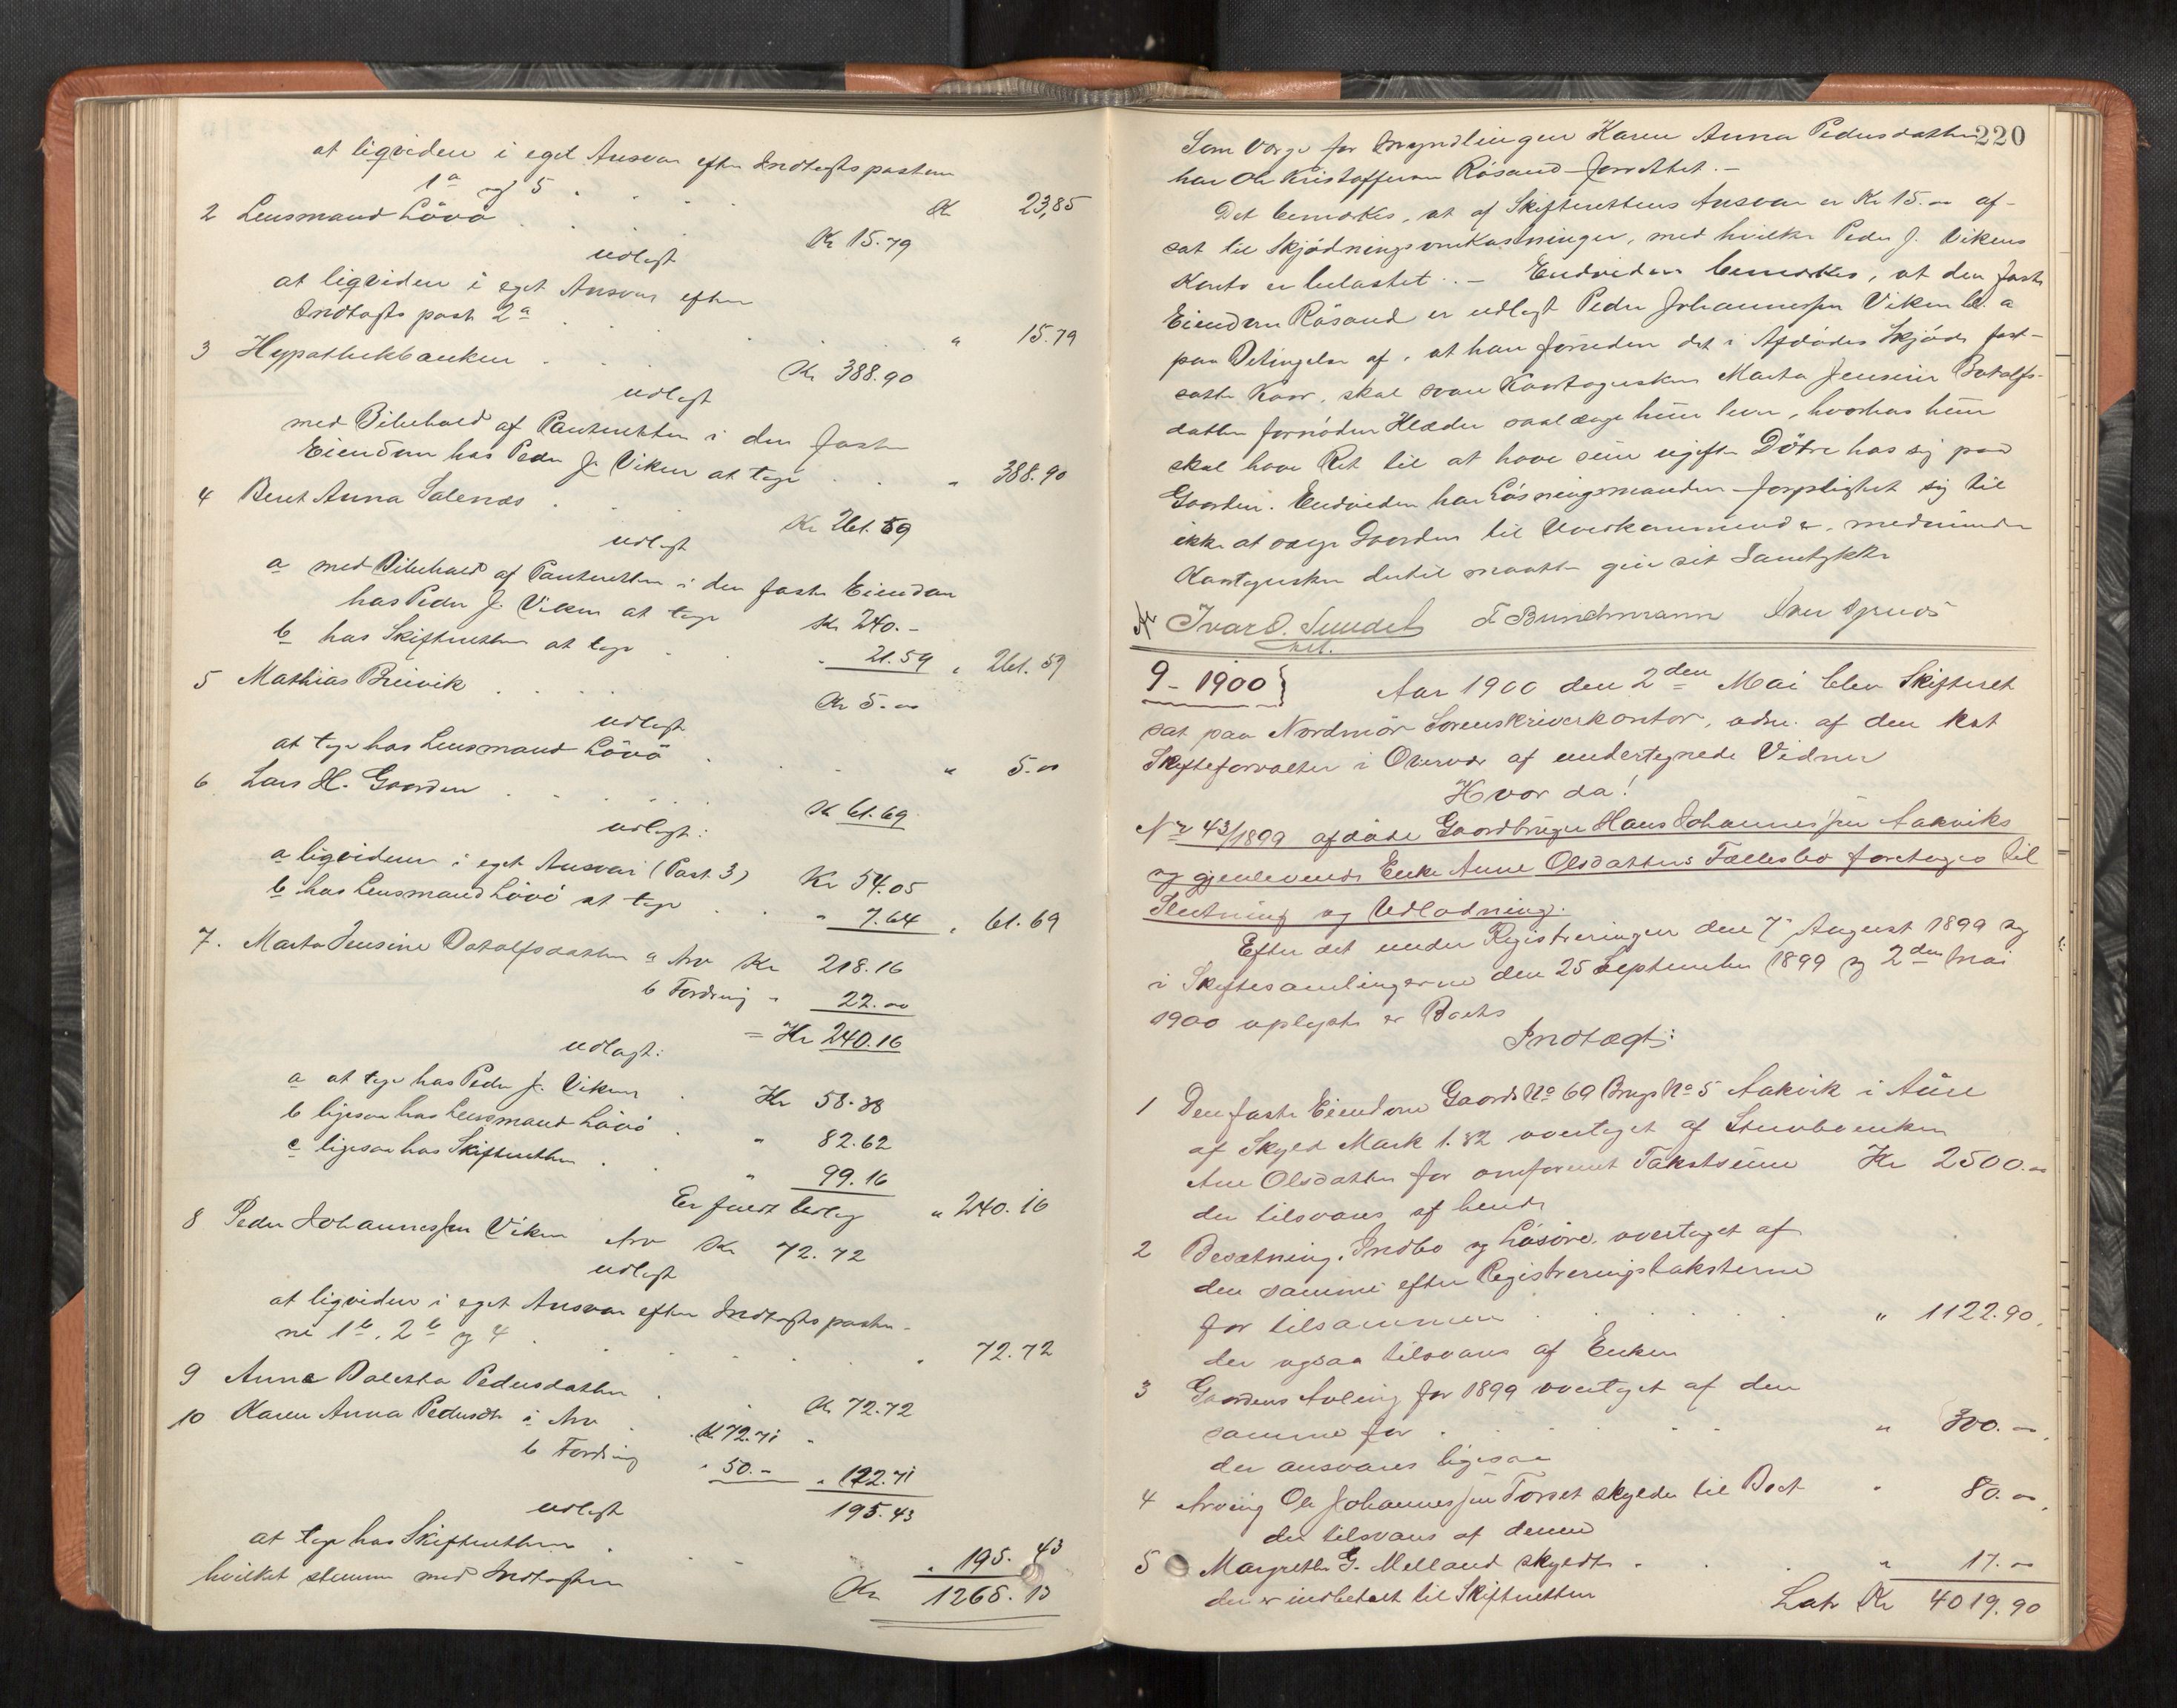 at liqvidere i eget Ansvar efter Indtægtsposterne
1a og 5 . . . Kr 23,85
2 Lensmand Lövö . . . Kr 15.79
udlagt
at liqvidere i eget Ansvar efter
Indtægts post 2a . . . " 15.79
3 Hypothekbanken . . . Kr 388.90
udlagt
med Bibehold af Panteretten i den faste
Eiendom hos Peder J. Viken at tage . . . " 388.90
4 Beret Anna Salenæs . . . Kr 261.59
udlagt
a med Bibehold af Panteretten i den faste Eiendom
hos Peder J. Viken at tage Kr 240.-
b hos Skifteretten at tage . . " 21.59 " 261.59
5 Mathias Breivik . . . . Kr 5.00
udlagt
at tage hos Lensmand Lövö . . . " 5.00
6 Lars H. Gaarden . . . . Kr 61.69
udlagt:
a liqviderer i eget Ansvar (Post 3) Kr 54.05
b hos Lensmand Lövö at tage . . " 7.64 " 61.69
7. Marta Jensine Botolfsdatter a Arv Kr 218.16
b Fordring " 22.00
= Kr 240.16
udlagt:
a at tage hos Peder J. Viken . Kr 58.38
b ligesaa hos Lensmand Lövö . " 82.62
c ligesaa hos Skifteretten . . " 99.16
Er fuldt beløb " 240.16
8 Peder Johannessen Viken Arv Kr 72.72
udlagt
at liqvidere i eget Ansvar efter Indtægtsposter-
ne 1b, 2b og 4 . . . . " 72.72
9 Anne Dolettha Pedersdatter . . Kr 72.72
10 Karen Anna Pedersdt a Arv . Kr 72.71 "
b Fordring " 50.- " 122.71
udlagt 195.43
at tage hos Skifteretten . . . " 195.43
hvilket stemmer med Indtægten Kr 1265.13
220
Som Værge for Myndlingen Karen Anna Pedersdatter
har Ole Kristoffersen Råsand forrettet. -
Det bemærkes, at af Skifterettens Ansvar er Kr 15.00 af-
sat til Skjødningsomkostninger, med hvilke Peder J. Vikens
Konto er belastet. - Endvidere bemærkes, at den faste
Eiendom Råsand er udlagt Peder Johannessen Viken bl. a
paa Betingelse af, at han foruden det i Afdødes Skjøde fast-
satte Kaar, skal svare Kaartagersken Marta Jensine Botolfs-
datter fornøden Klæder saalænge hun lever, hvorhos hun
skal have Ret til at have sine ugifte Döttre hos sig paa
Gaarden. Endvidere har Løsningsmanden forpligtet sig til
ikke at sælge Gaarden til Uvedkommende, medmindre
Kaartagersken dertil maatte give sit Samtykke
Ivar O. Sundet F Bundmann Iver
9 - 1900 } Aar 1900 den 2den Mai blev Skifteret
sat paa Nordmör Sorenskriverkontor, adm. af den kst
Skifteforvalter i Overvær af undertegnede Vidner
Hvor da!
No 43/1899 afdöde Gaardbruger Hans Johannessen Aakviks
og gjenlevende Enke Anne Olsdatters Fællesbo foretages til
Slutning og Udlodning.
Efter det under Registreringen den 7 August 1899 og
i Skiftesamlingerne den 25 September 1899 og 2den Mai
1900 oplyste er Boets
Indtægt:
1 Den faste Eiendom Gaards No 69 Brugs No 5 Aakvik i Aure
af Skyld Mark 1.82 overtaget af Stervboenken
Ane Olsdatter for omforenet Takstsum Kr 2500.00
der tilsvares af hende
2 Besætning, Indbo og Løsøre overtaget af
den samme efter Registreringstaksterne
for tilsammen . . . " 1122.90
der ogsaa tilsvares af Enken
3 Gaardens Avling for 1899 overtaget af den
samme for . . . . " 300.-
der ansvares ligesaa
4 Arving Ole Johannessen Torset skylder til Boet " 80.00
der tilsvares af denne
5 Margrethe G. Melland skyldte . . " 17.00
der er indbetalt til Skifteretten Lats Kr 4019.90